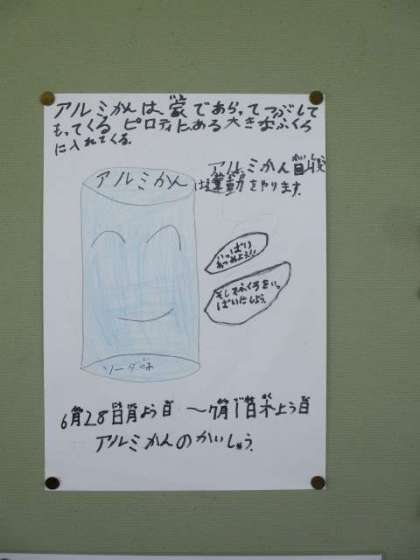 アルミかんは、家であらってつぶして
もってくる ピロティにある大きなふくろ
に入れてくる。
アルミかん回収
アルミかん
は運動をやります。
いっぱい
あつめよう!!
そしてふくろをいっ
ぱいにしよう。
ソーダ味
6月28日月よう日 〜7月1日木よう日
アルミかんのかいしゅう.